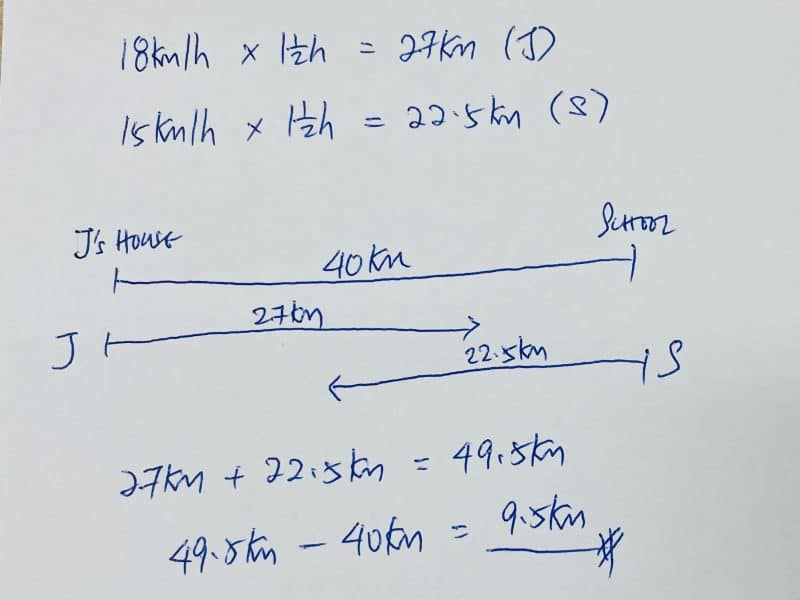 18km/h × 1½h = 27km (J)
15km/h × 1½h = 22.5km (S)
J's HOUSE
SCHOOL
40km
27km
J
22.5km
S
27km + 22.5km = 49.5km
49.5km – 40km = 9.5km